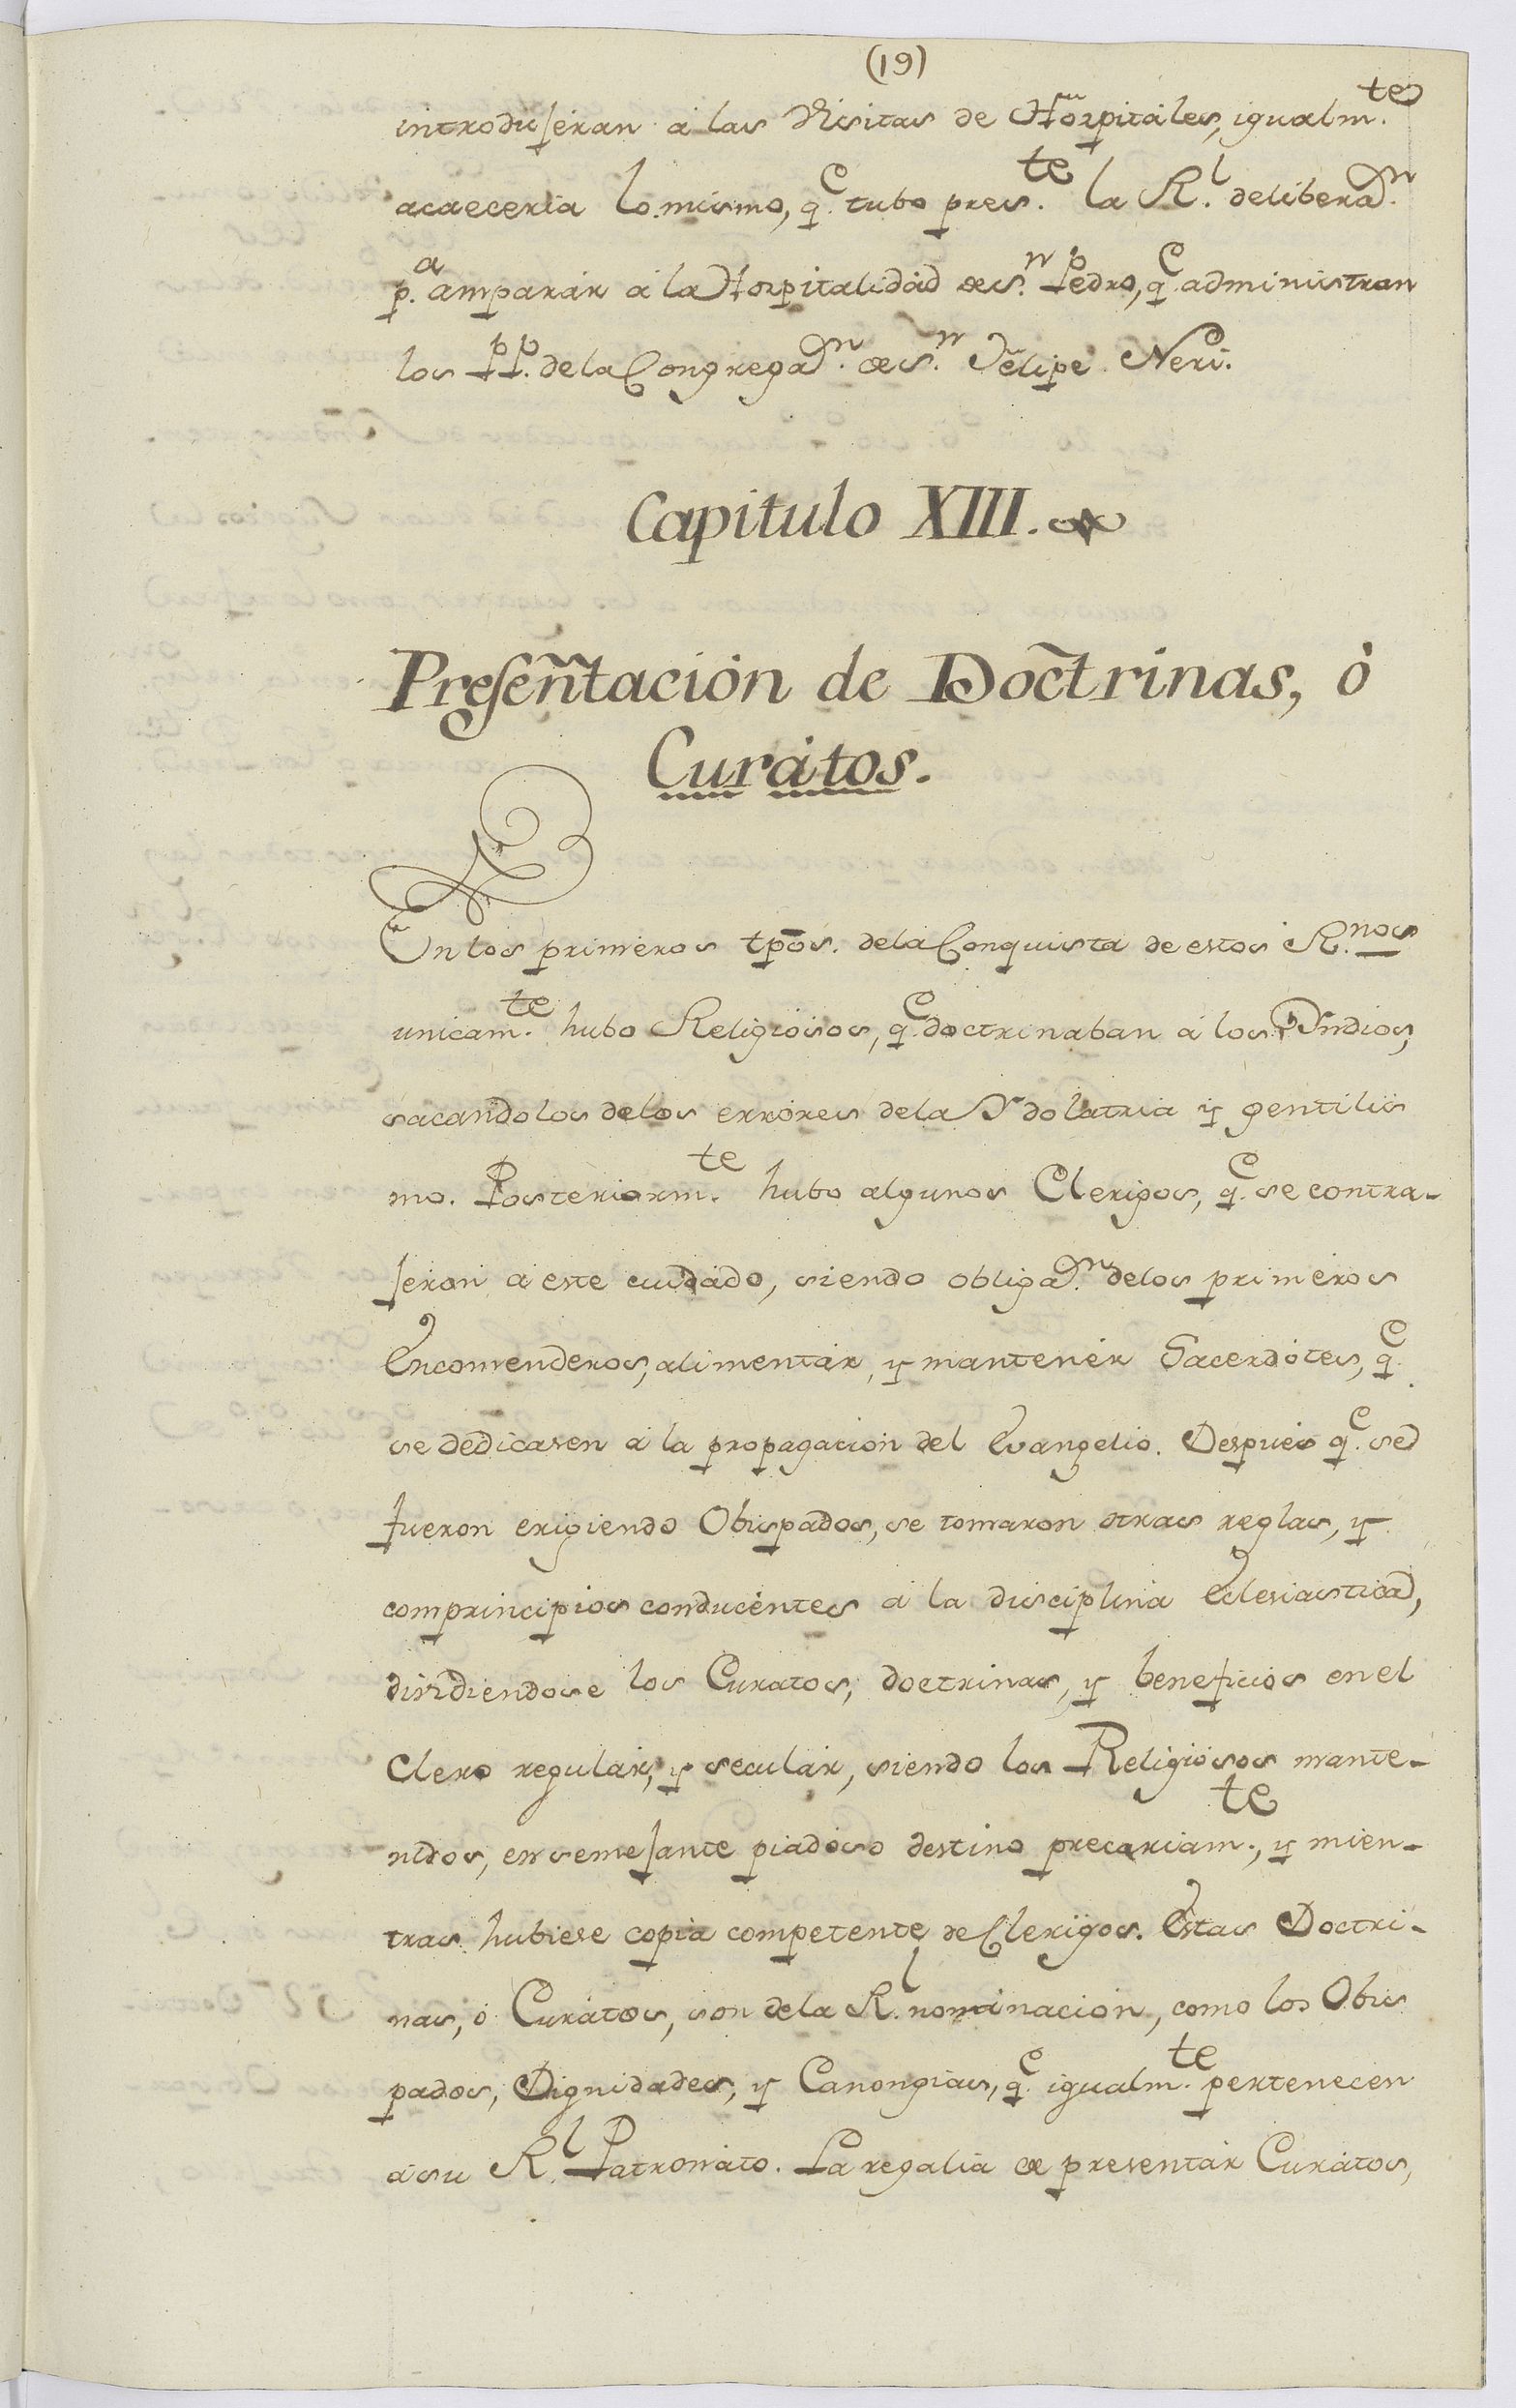 (19)
introduјeran á las Visitas de Hospitáles, igualm.te
acaeceria lo mismo, q.e tubo pres.te la R.l deliberaº.n
p.a amparár á la Hospitalidád de S.n Pedro, q.e administran
los PP. de la Congregaº.n de S.n Felipe Neri.
Capitulo XIII.
Presentación de Doctrinas, ó
Curátos.
En los priméros tpos. de la Conquista de estos R.nos
unicam.te hubo Religiósos, q.e doctrinaban á los Yndios,
sacandolos de los erróres de la Ydolatria y gentilis
mo. Posteriorm.te hubo algunos Clerigos, q.e se contra-
jeron á este cuidádo, siendo obligaº.n de los priméros
Encomenderos, alimentár, y mantenér Sacerdótes, q.e
se dedicasen á la propagación del Evangelio. Despues q.e se
fueron erigiendo Obispados, se tomaron otras reglas, y
comprincipios conducéntes á la disciplina Eclesiastica,
dividiendose los Curatos, doctrinas, y beneficios en el
Clero regulár, y seculár, siendo los Religiósos mante-
nidos, en semejante piadóso destino precariam.te, y mien-
tras hubiese copia competente de Clerigos. Estas Doctri-
nas, ó Curátos, son de la R.l nominación, como los Obis
pados, Dignidades, y Canongias, q.e igualm.te pertenecen
á su R.l Patronáto. La regalia de presentár Curátos,